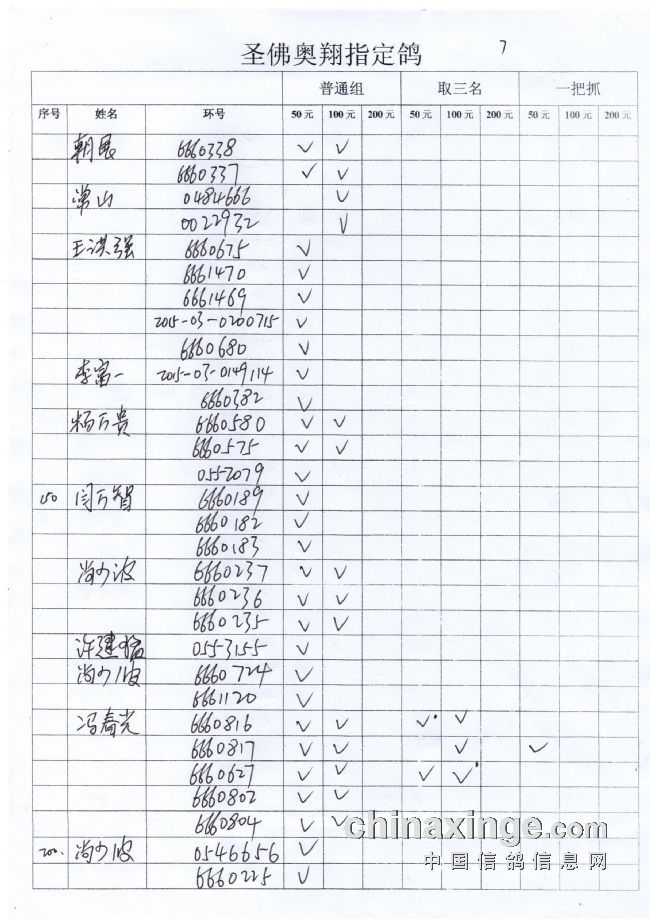 圣佛奥翔指定鸽 7
普通组 取三名 一把抓
序号 姓名 环号 50元 100元 200元 50元 100元 200元 50元 100元 200元
6660338 ✓ ✓
6660337 ✓ ✓
常山 0484666 ✓
0022932 ✓
王洪强 6660675 ✓
6661470 ✓
6661469 ✓
2015-03-0200715 ✓
6660680 ✓
李富一 2015-03-0149114 ✓
6660382 ✓
杨万贵 6660580 ✓ ✓
6660575 ✓ ✓
0552079 ✓
闫万智 6660189 ✓
6660182 ✓
6660183 ✓
尚少波 6660237 ✓ ✓
6660236 ✓ ✓
6660235 ✓ ✓
许建 0553155 ✓
尚少波 6660724 ✓
6661120 ✓
冯春光 6660816 ✓ ✓ ✓ ✓
6660817 ✓ ✓ ✓ ✓
6660627 ✓ ✓ ✓ ✓
6660802 ✓ ✓
6660804 ✓ ✓
chinaxinge.com
200. 尚少波 0546656 ✓
中国信鸽信息网
6660225 ✓